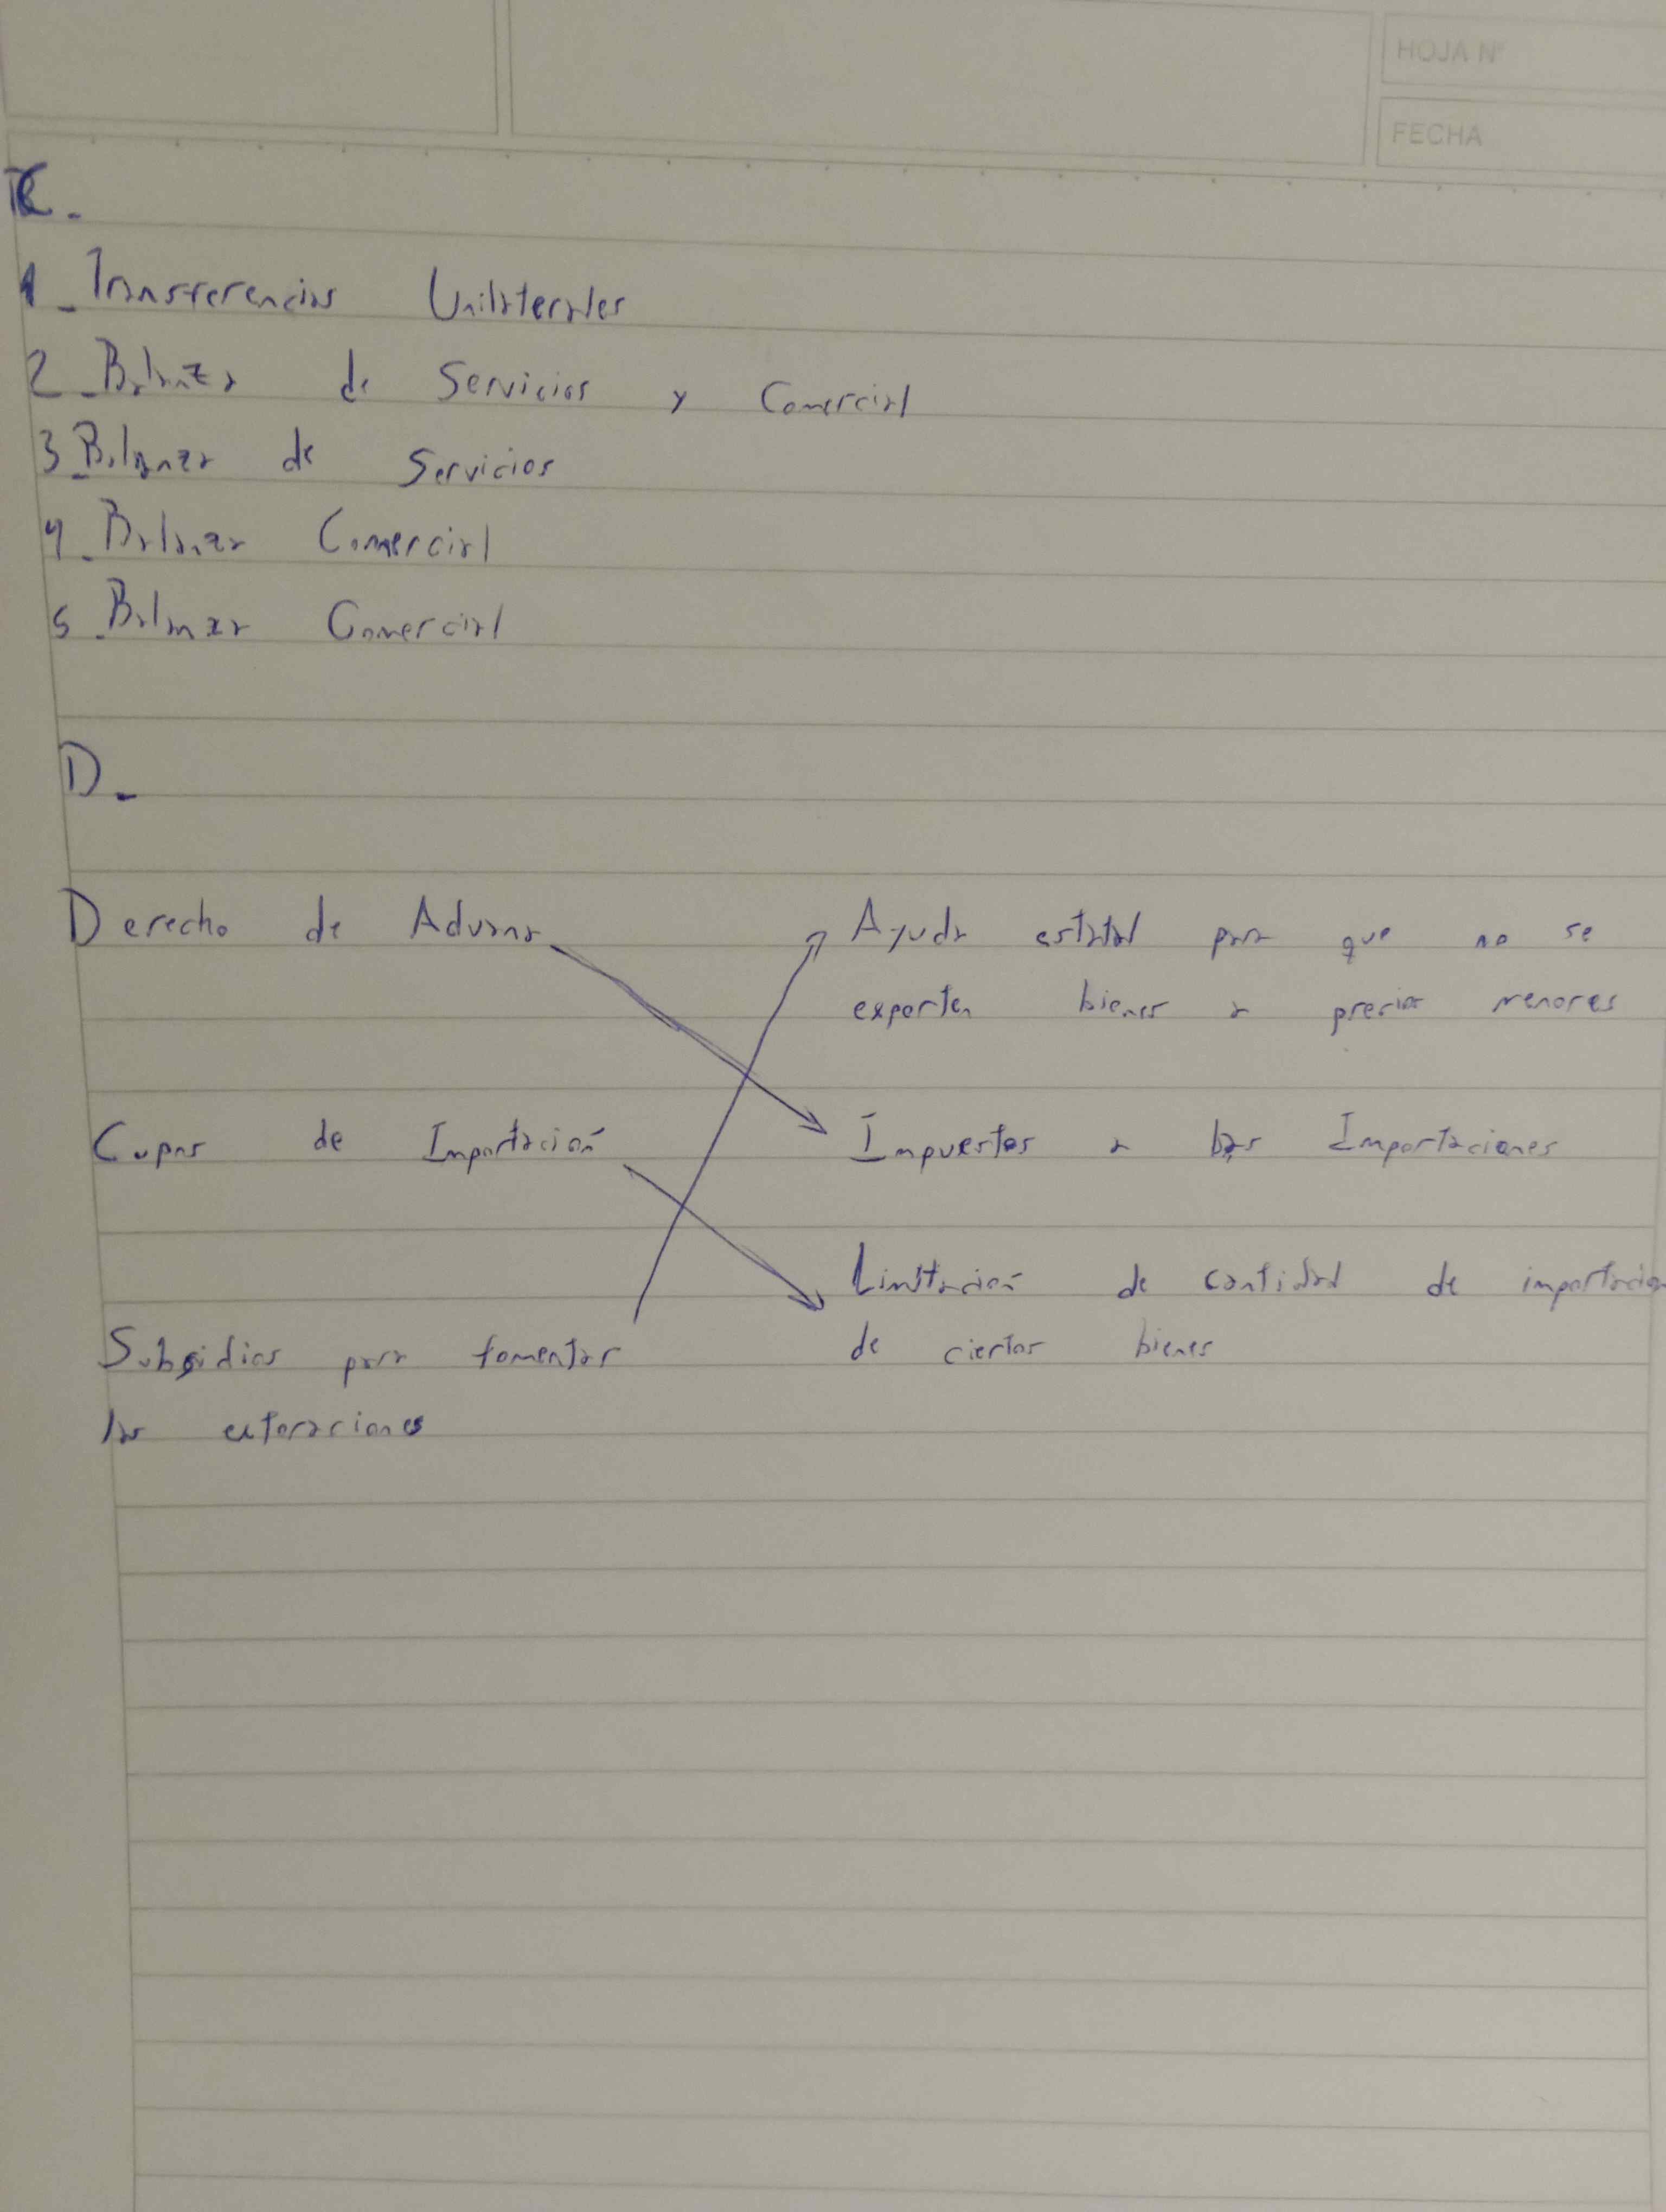 HOJA N°
FECHA
C.
1_Transferencias Unilaterales
2_Balanza de Servicios y Comercial
3_Balanza de Servicios
4_Balanza Comercial
5_Balanza Comercial
D_
Derecho de Aduana
Ayuda estatal para que no se
exporten bienes a precios menores
Cupos de Importación
Impuestos a las Importaciones
Limitación de cantidad de importacion
de ciertos bienes
Subsidios para fomentar
las